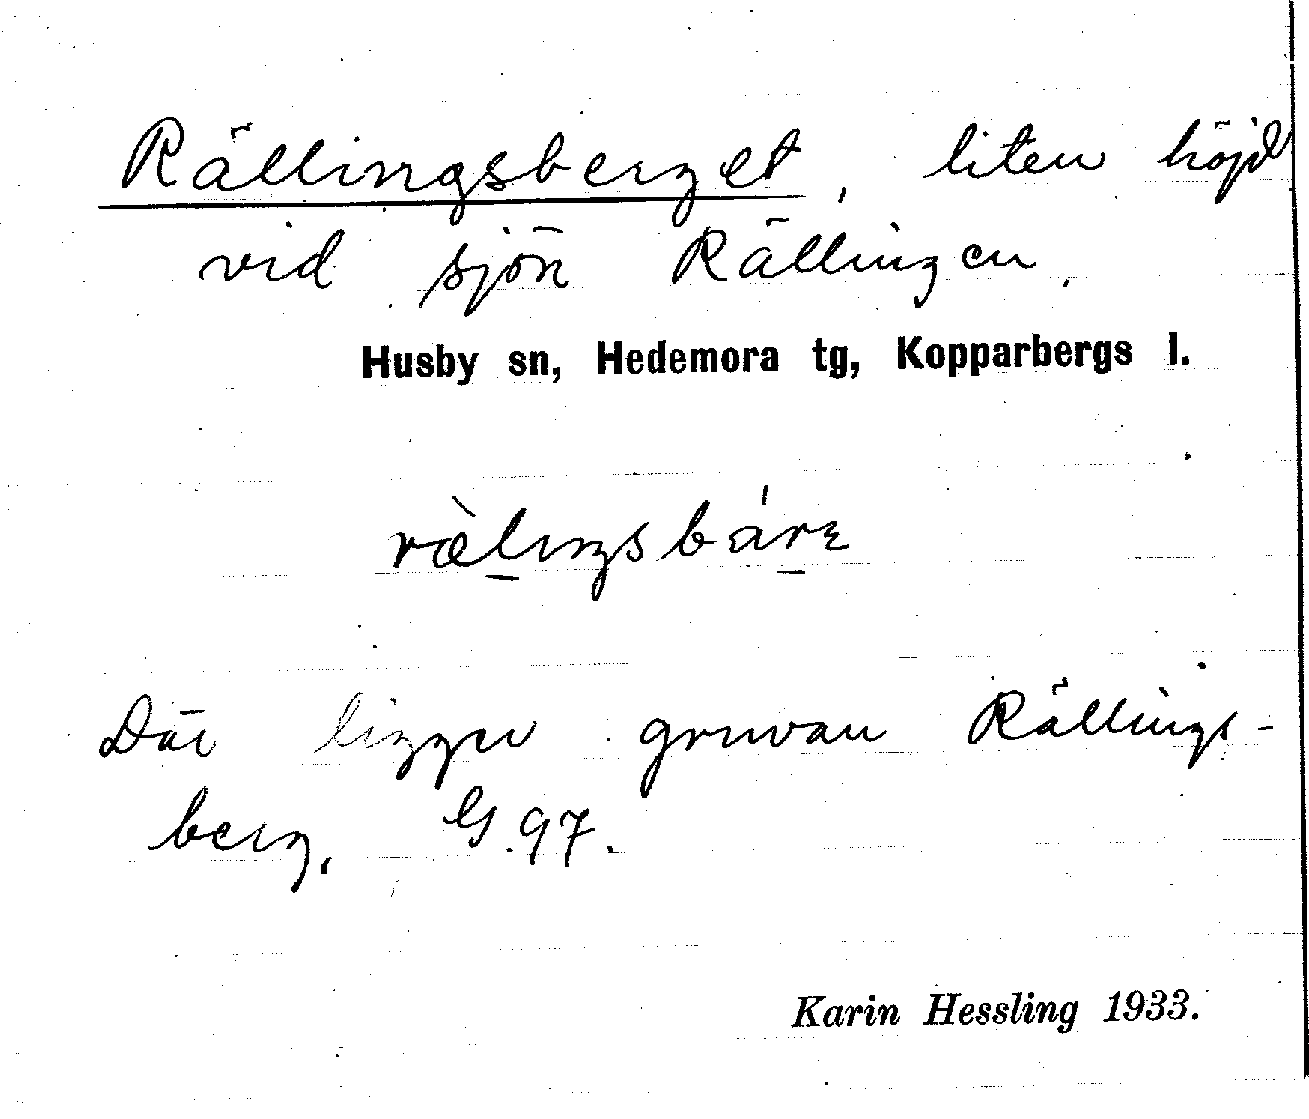 Rällingsberget, liten höjd
vid sjön Rällingen.
Husby sn, Hedemora tg, Kopparbergs l.
ræ̀lingsbárɛ
Där ligger gruvan Rällings-
berg. G 97.
Karin Hessling 1933.